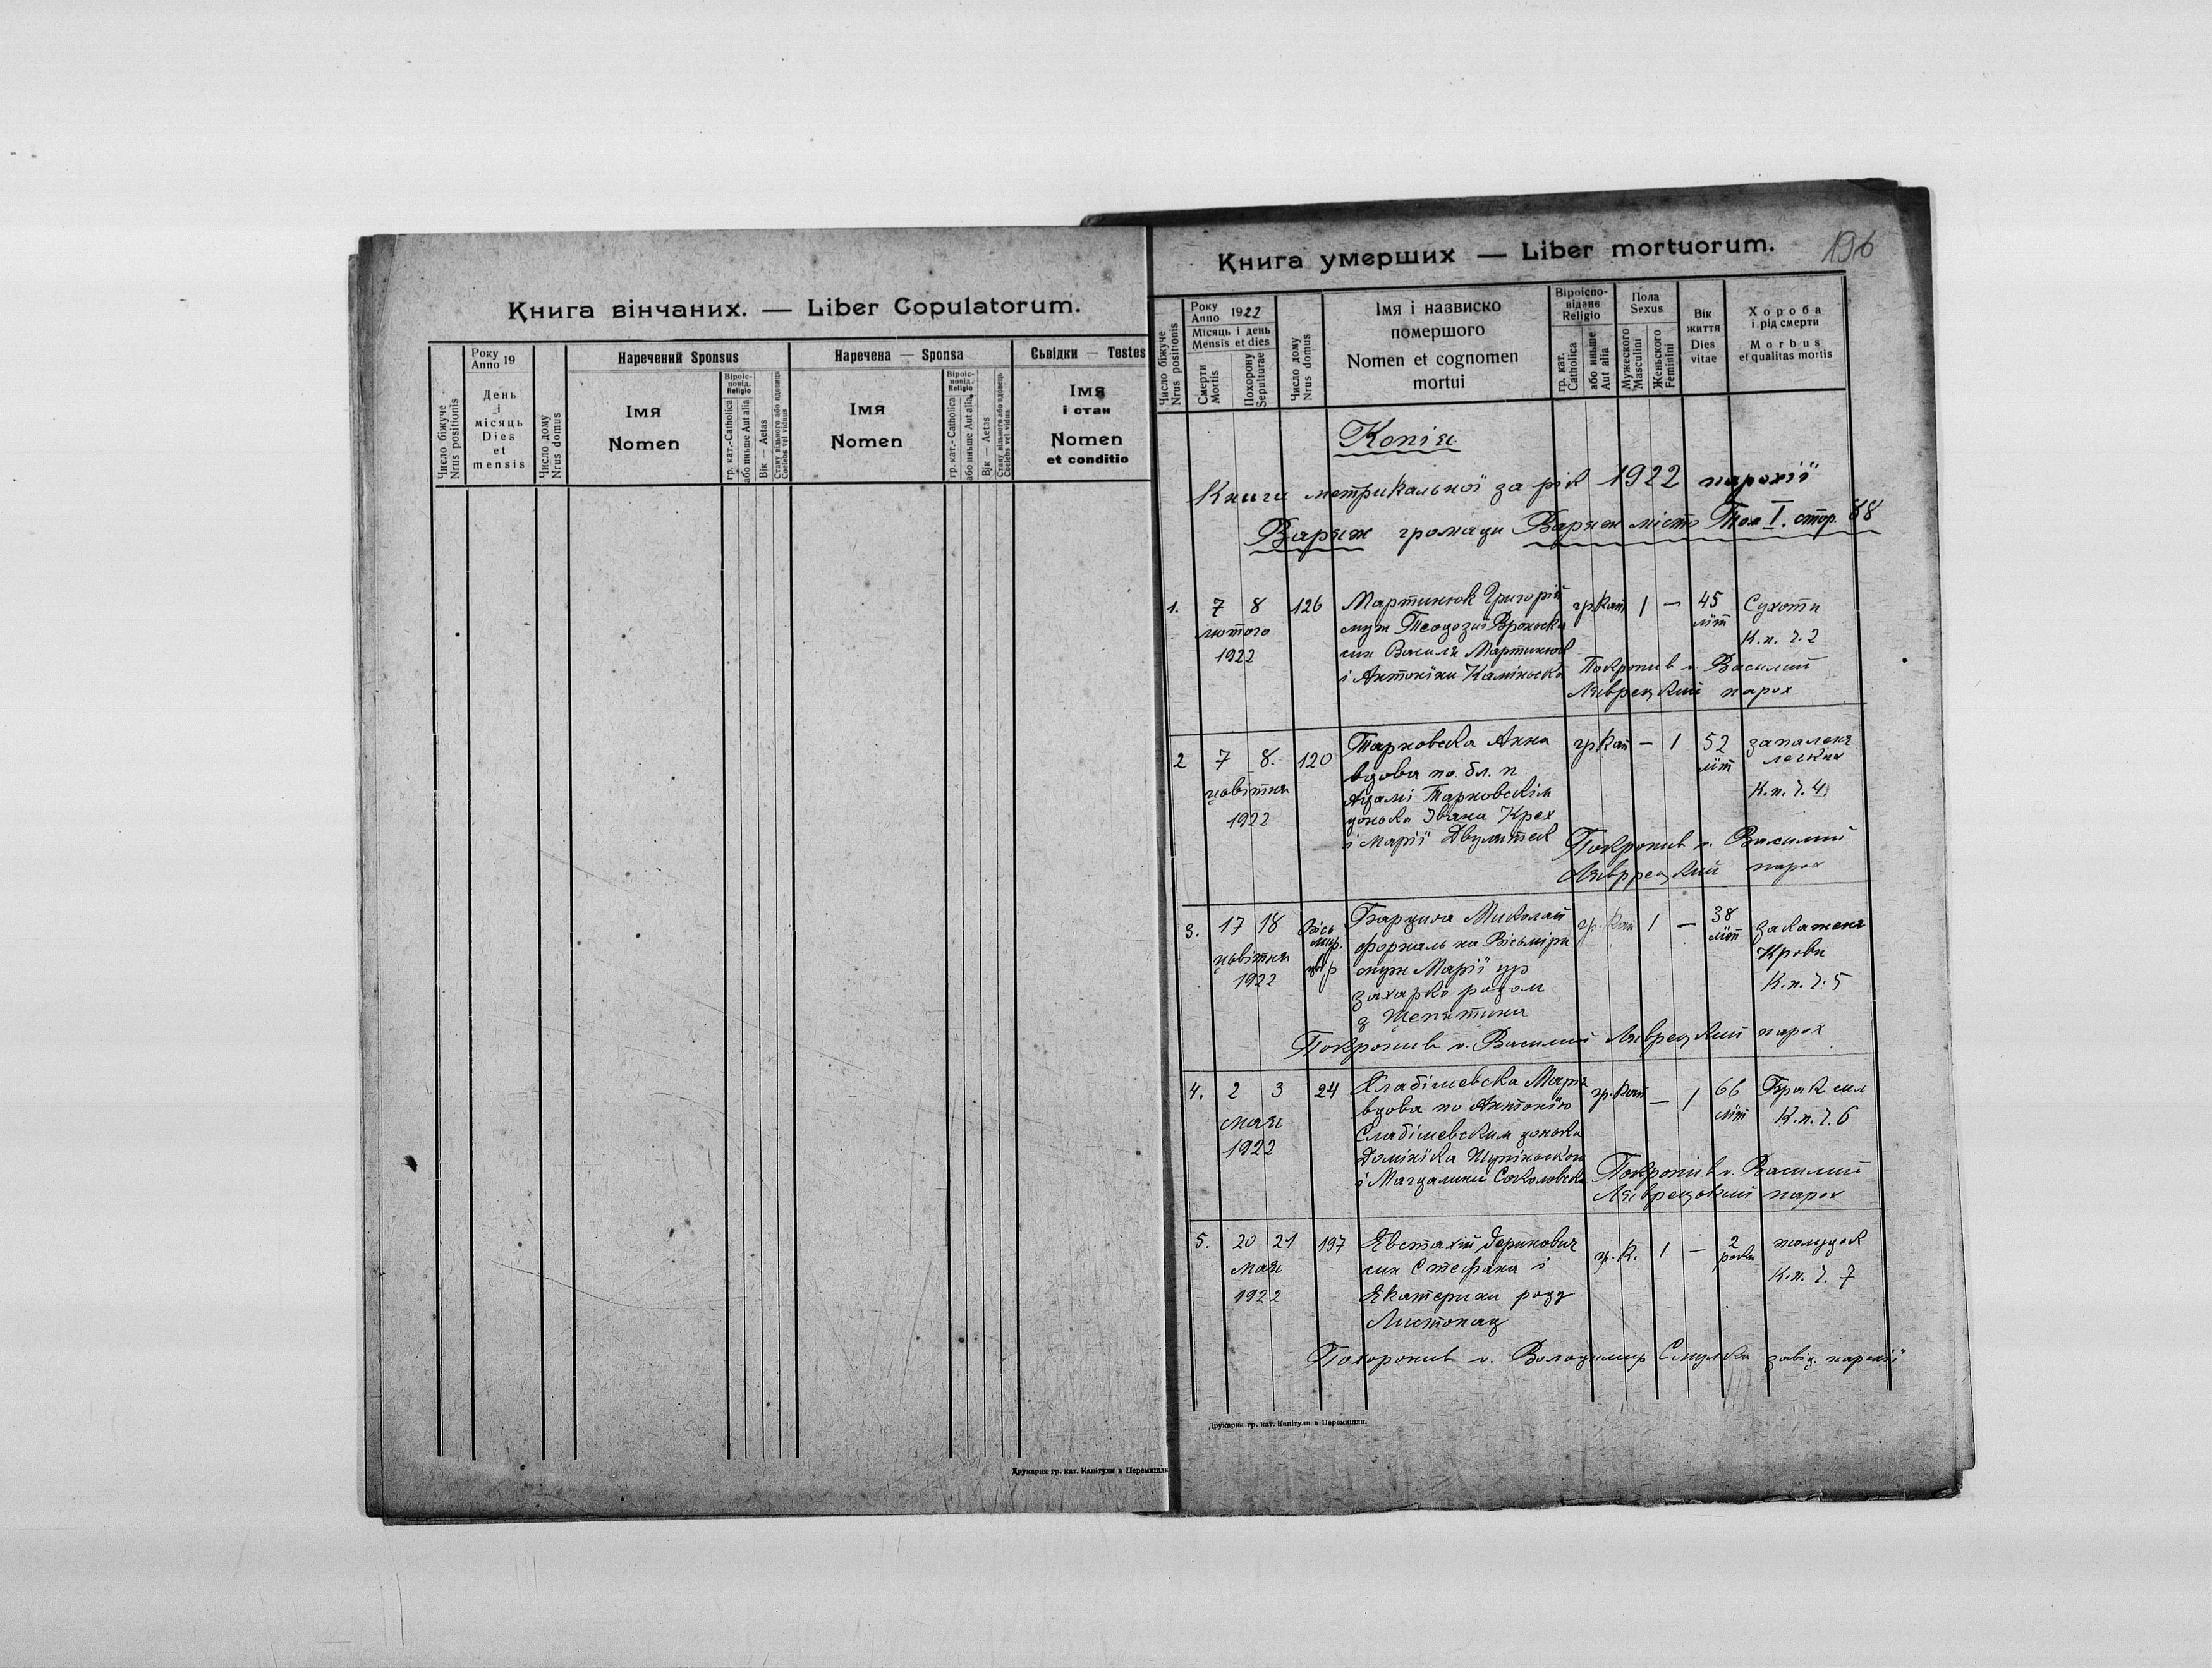 Книга вінчаних. — Liber Copulatorum.
Число біжуче
Nrus positionis
Року
Anno 19
День
і
місяць
Dies
et
mensis
Число дому
Nrus domus
Наречений Sponsus
Імя
Nomen
Віроіс-
повід.
Religio
гр. кат.-Catholica
або иньше Aut alia
Вік — Aetas
Стану вільного або вдовиця
Coelebs vel vidua
Наречена — Sponsa
Імя
Nomen
Віроіс-
повід.
Religio
гр. кат.-Catholica
або иньше Aut alia
Вік — Aetas
Стану вільного або вдовець
Coelebs vel vidua
Сьвідки — Testes
Імя
і стан
Nomen
et conditio
Друкарня гр. кат. Капітули в Перемишли
Книга умерших — Liber mortuorum.
196
Число біжуче
Nrus positionis
Року
Anno 1922
Місяць і день
Mensis et dies
Смерти
Mortis
Похорону
Sepulturae
Число дому
Nrus domus
Імя і назвиско
помершого
Nomen et cognomen
mortui
Віроіспо-
відане
Religio
гр. кат.
Catholica
або иньше
Aut alia
Пола
Sexus
Мужеского
Masculini
Женьского
Feminini
Вік
життя
Dies
vitae
Хороба
і рід смерти
Morbus
et qualitas mortis
Копія
Книги метрикальної за рік 1922 парохії
Варяж громади Варяж місто Том I. стор. 68
1. 7 8 126 Мартинюк Григорій гр кат 1 — 45 Сухоти
лютого муж Теодозиї літ
1922 син Василя Мартинюк К.п. ч. 2
і Антоніни Каміньска Покропив о. Василий
Лаврецкий парох
2 7 8. 120 Тарновска Анна гр кат — 1 52 запаленя
цвітня вдова по бл. п літ легких
1922 Адамі Тарновскім К.п. ч. 4.
донька Івана Крех
і Марії Покропив о. Василий
Лаврецкий парох
3. 17 18 Вісь гр. кат 1 — 38 закаженя
цвітня мір. Миколай літ крови
1922 двір форналь на Вісьмірі К.п. ч. 5
муж Марії ур
Захарко родом
з Щепятина
Покропив о. Василий Лаврецкий парох
4. 2 3 24 Слабішевска Марія гр. кат — 1 66 Брак сил
мая вдова по Антонію літ К.п. ч. 6
1922 Слабішевским донька
Домініка
і Магдалини Соколовска Покропив о. Василий
Лаврецький парох
5. 20 21 197 Евстахій гр. к. 1 — 2 жолудок
мая син Стефана і роки К.п. ч. 7
1922 Екатерини роду
Листопад
Похоронив о. Володимир завід. парохії
Друкарня гр. кат. Капітули в Перемишли.